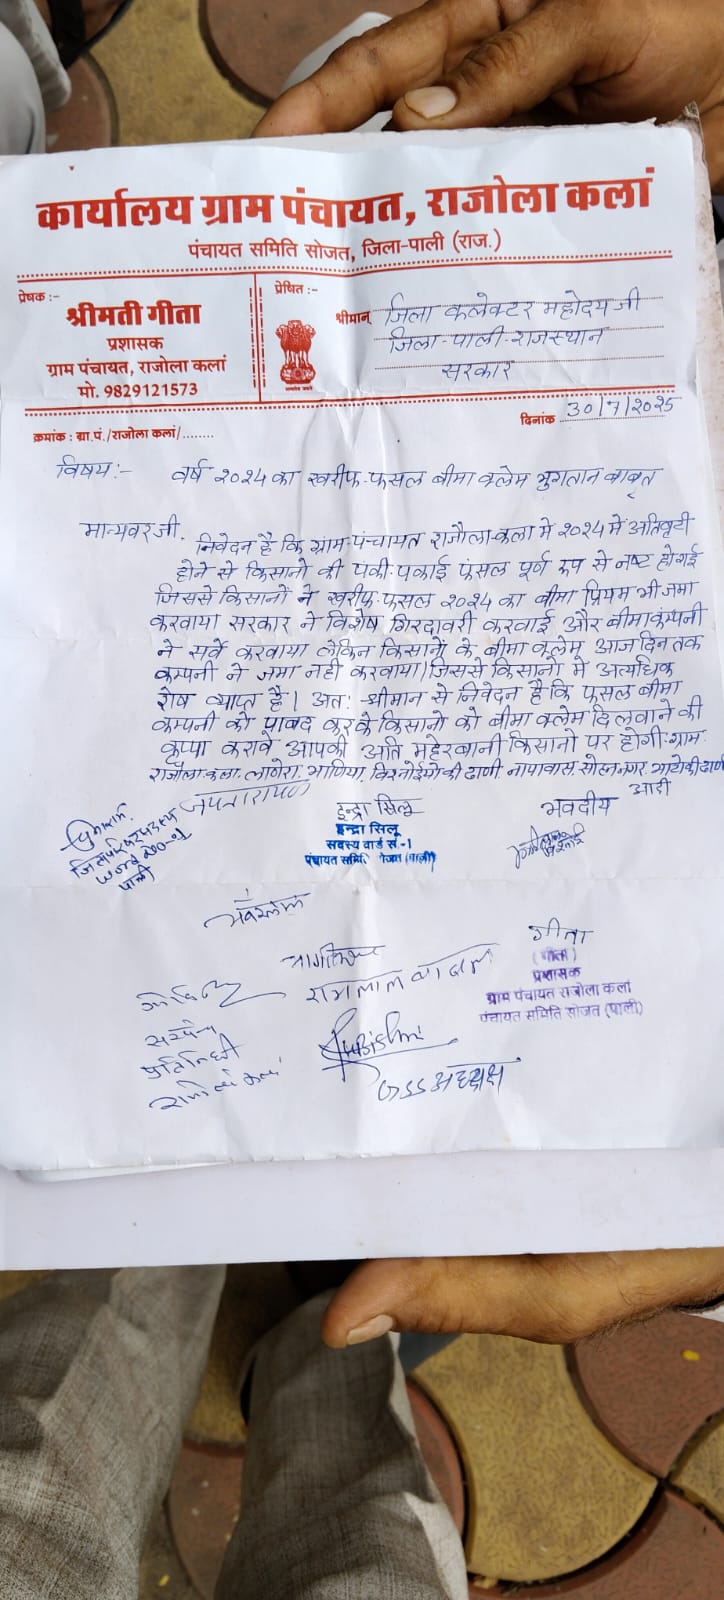 कार्यालय ग्राम पंचायत, राजोला कलां
पंचायत समिति सोजत, जिला-पाली (राज.)
प्रेषक :-
श्रीमती गीता
प्रशासक
ग्राम पंचायत, राजोला कलां
मो. 9829121573
प्रेषित :-
श्रीमान् जिला कलेक्टर महोदय जी
जिला-पाली-राजस्थान
सरकार
क्रमांक : ग्रा.पं./राजोला कलां/........
दिनांक 30/7/2025
विषय:- वर्ष २०२४ का खरीफ-फसल बीमा क्लेम भुगतान बाबत्
मान्यवर जी.
निवेदन है कि ग्राम-पंन्चायत राजौला-कला मे २०२४ में अतिवृष्टी
होने से किसानो की पकी-पकाई फसल पूर्ण रूप से नष्ट हो गई
जिससे किसानों ने खरीफ-फसल २०२४ का बीमा प्रियम भी जमा
करवाया सरकार ने विशेष गिरदावरी करवाई और बीमा कंम्पनी
ने सर्वे करवाया लेकिन किसानों के बीमा क्लेम आज दिन तक
कम्पनी ने जमा नही करवाया। जिससे किसानो में अत्यधिक
रोष व्याप्त है। अत: श्रीमान से निवेदन है कि फसल बीमा
कम्पनी को पाबंद करके किसानो को बीमा क्लेम दिलवाने की
कृप्पा करावें आपकी अति महेरबानी किसानो पर होगी-ग्राम-
राजौला-कला, लाणेरा, भाणिया, विश्नोईयो की ढाणी, नापावास, सोहननगर, भाटो की ढाणी
आदी
भवदीय
इन्द्रा सिलू
इन्द्रा सिलू
सदस्य वार्ड सं.-1
पंचायत समिति सोजत (पाली)
पाली
गीता
(गीता)
प्रशासक
ग्राम पंचायत राजोला कलां
पंचायत समिति सोजत (पाली)
रामलाल
सरपंच
प्रतिनिधी
राजोला कलां
GSS अध्यक्ष